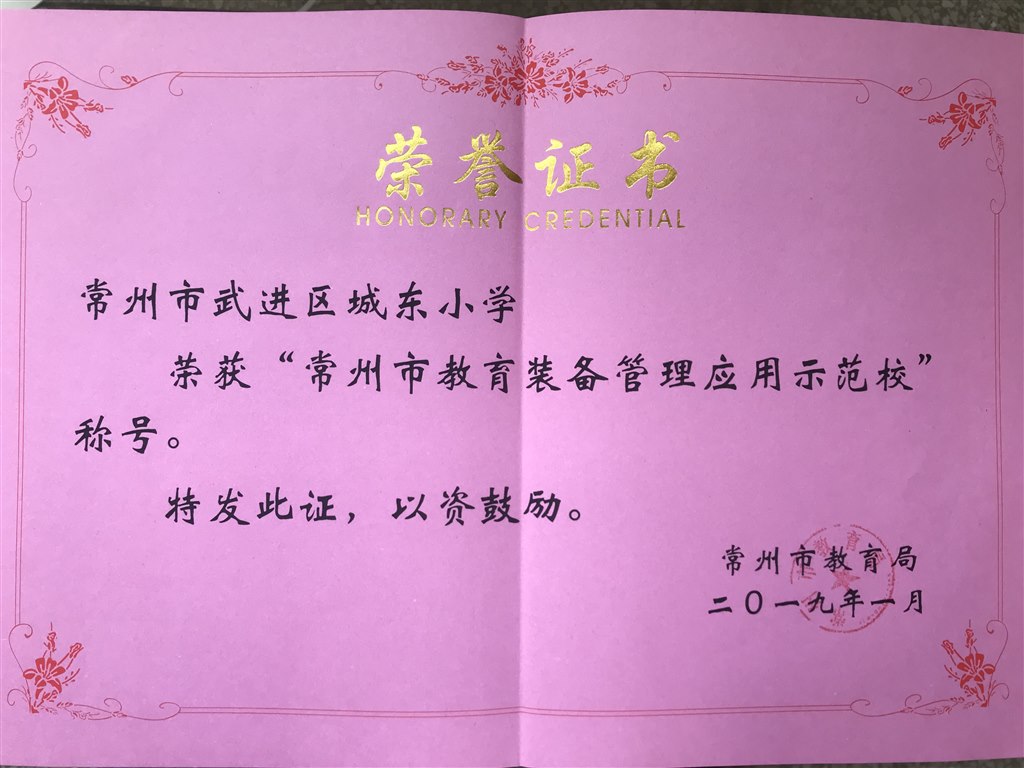 荣誉证书
HONORARY CREDENTIAL
常州市武进区城东小学
荣获“常州市教育装备管理应用示范校”
称号。
特发此证，以资鼓励。
常州市教育局
二〇一九年一月